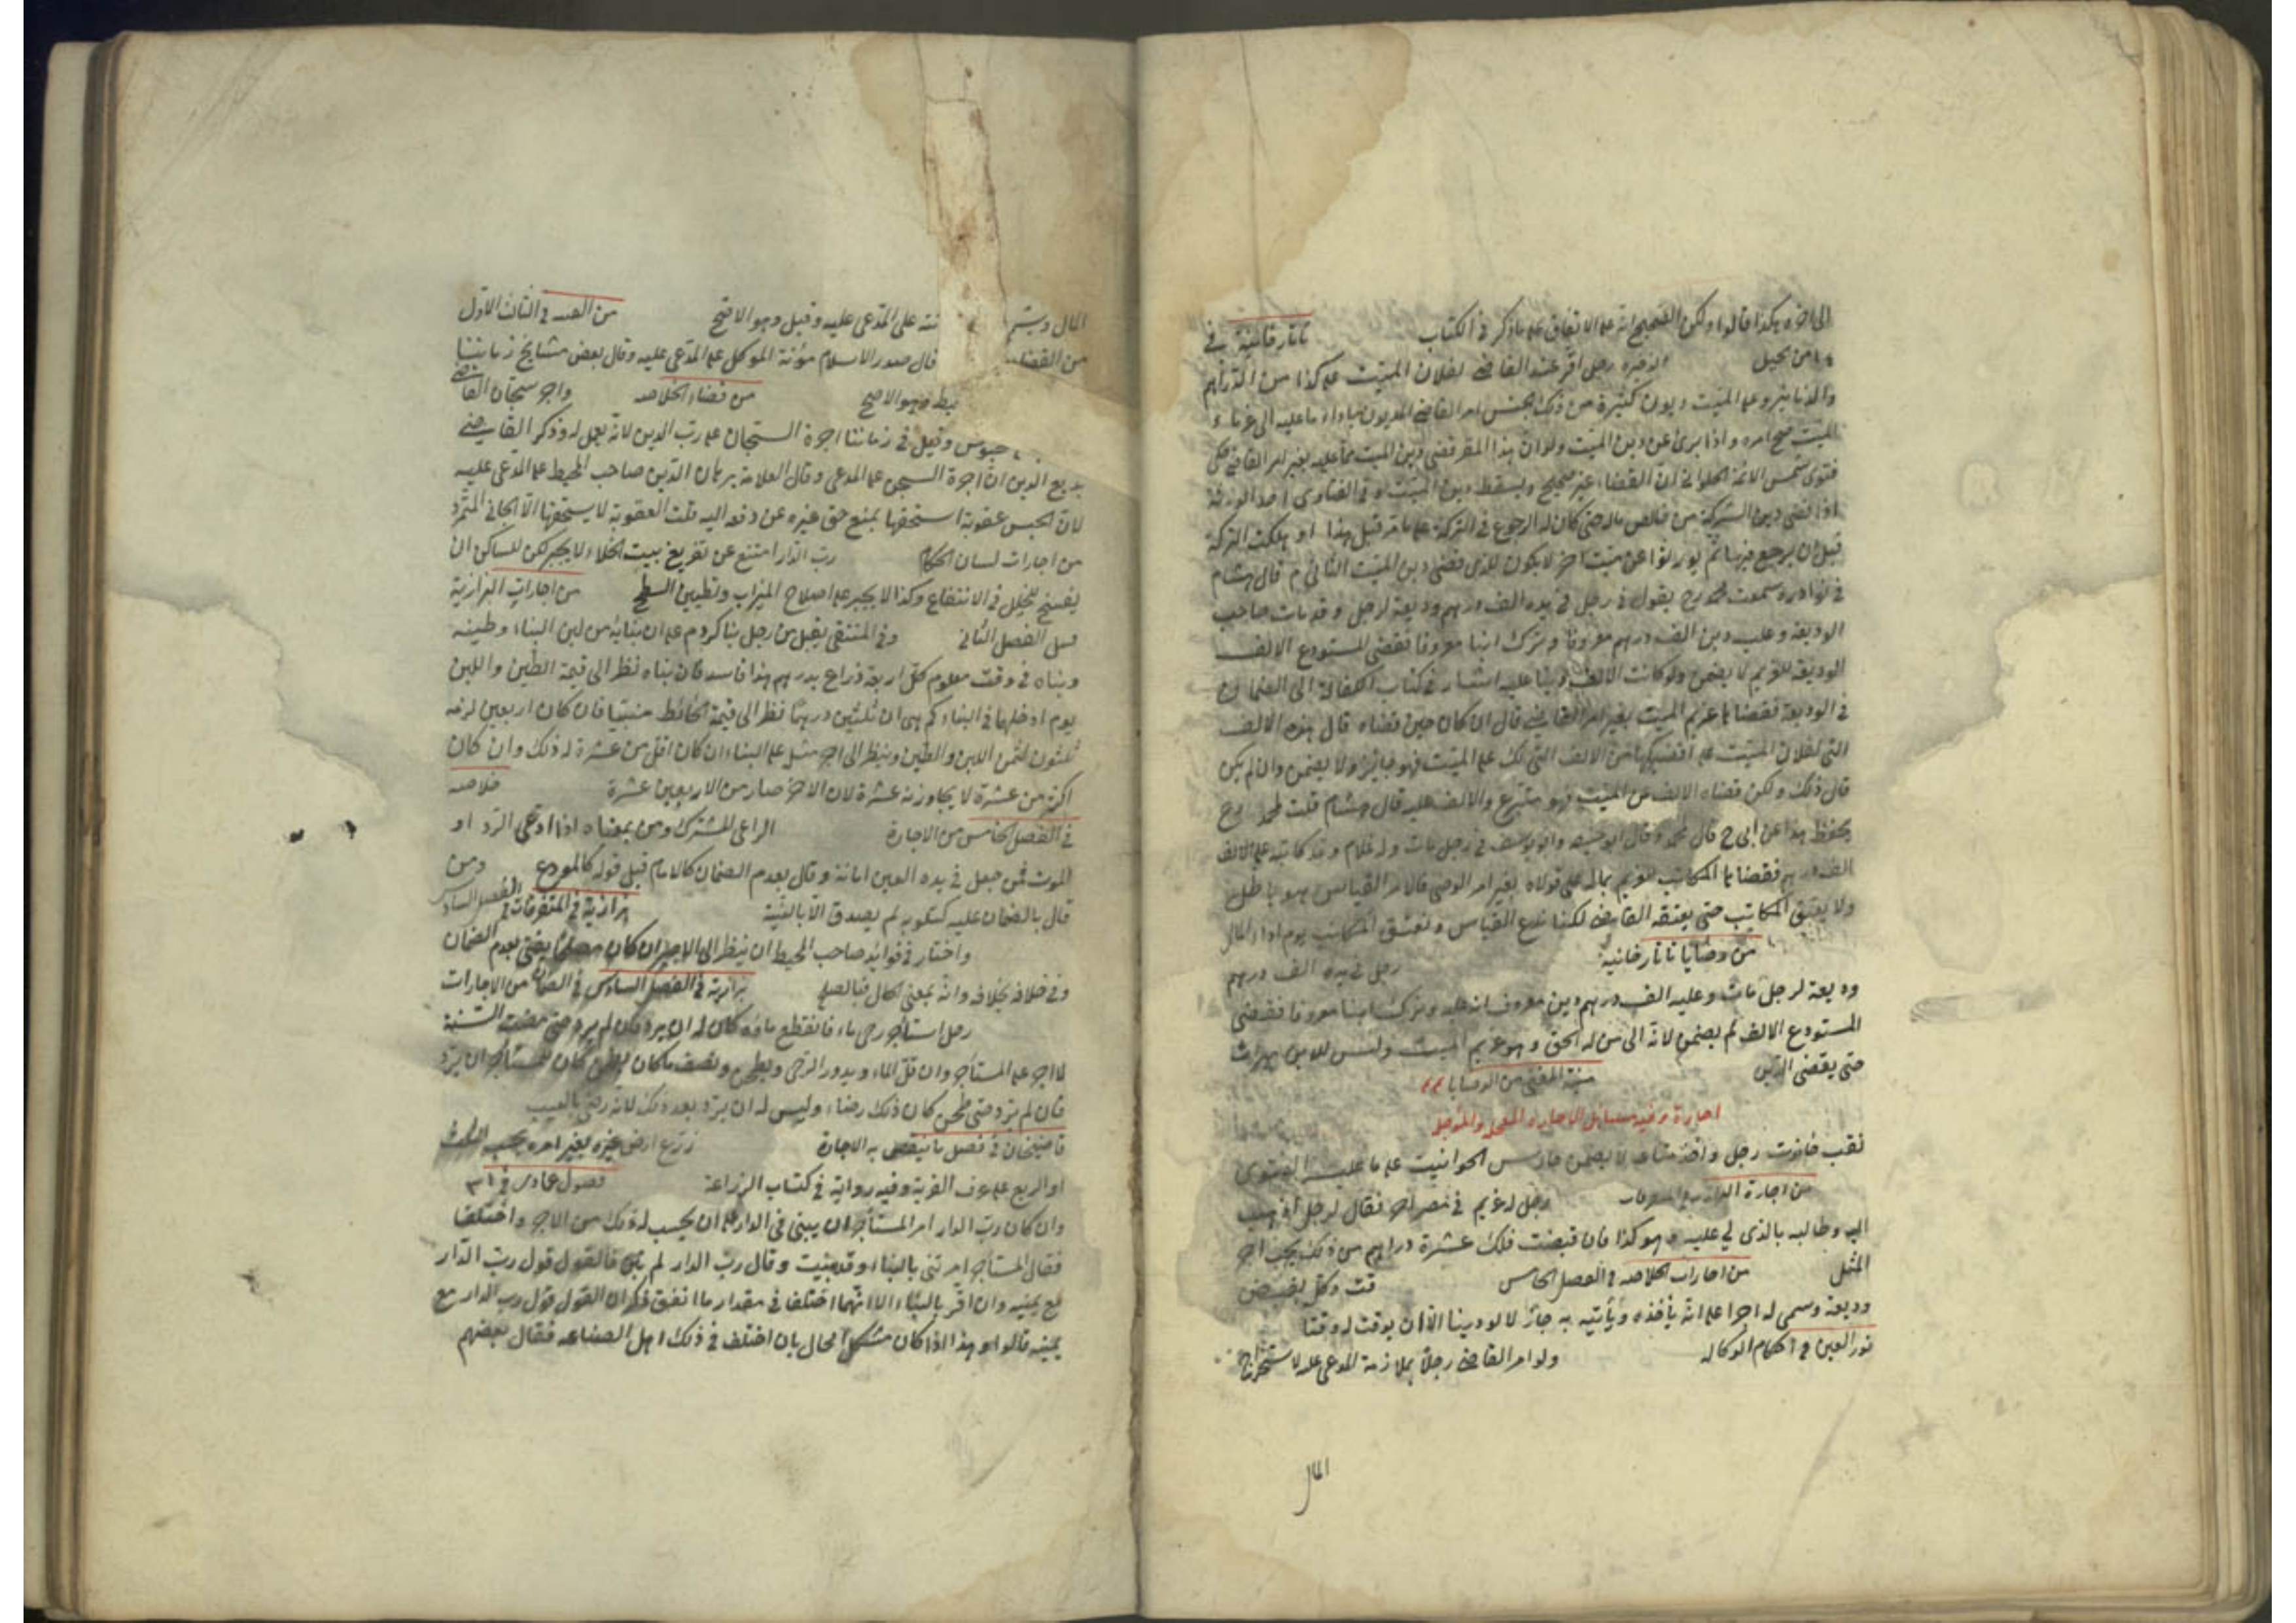 الى اخره هكذا قالوا ولكن الصحيح انه على الاتفاق على ما ذكر في الكتاب تاتارخانية في
من الحيل الذخيرة رجل اقر عند القاضي لفلان الميت على كذا من الدراهم
والدنانير وعلى الميت ديون كثيرة من ذلك الجنس امر القاضي المديون باداء ما عليه الى غرماء
الميت صح امره واذا برئ عن دين الميت ولو ان هذا المقر قضى دين الميت مما عليه بغير امر القاضي حكى
فتوى شمس الائمة الحلواني ان القضاء غير صحيح ويسقط دين الميت وفي الفتاوى احد الورثة
اذا قضى دين التركة من خالص ماله حتى كان له الرجوع في التركة على ما مر قبل هذا او هلكت التركة
قبل ان يرجع فيها ثم لو ورثوا عن ميت اخر لا يكون للذي قضى دين الميت الثاني م قال هشام
في نوادره سمعت محمد رح يقول في رجل في يده الف درهم وديعة لرجل وقد مات صاحب
الوديعة وعليه دين الف درهم معروفا وترك ابنا معروفا فقضى المستودع الالف
الوديعة للغريم لا يضمن ولو كانت الالف دينا عليه اشار في كتاب الكفالة الى الضمان وع
في الوديعة فقضاها غريم الميت بغير امر القاضي قال ان كان حين قضاه قال هذه الالف
التي لفلان الميت على اقضيكها من الالف التي لك على الميت فهو جائز ولا يضمن وان لم يكن
قال ذلك ولكن قضاه الالف عن الميت فهو متبرع والالف عليه قال هشام قلت لمحمد رح
يحفظ هذا عن ابي ح قال محمد وقال ابو حنيفة وابو يوسف في رجل مات وله غلام وقد كاتبه على الف
الف درهم فقضاها المكاتب للغريم بماله على مولاه بغير امر الوصي قالا مر القياس هو باطل
ولا يعتق المكاتب حتى يعتقه القاضي لكنا ندع القياس ونعتق المكاتب يوم ادا المال
من وصايا تاتارخانية رجل في يده الف درهم
وديعة لرجل مات وعليه الف درهم دين معروف انه عليه وترك ابنا معروفا فقضى
المستودع الالف لم يضمن لانه الى من له الحق وهو غريم الميت وليس للابن ميراث
حتى يقضى الدين منية المفتي من الوصايا
اجارة وفيه مسائل الاجارة المعجل والمؤجل
نقب حانوت رجل واخذ متاعه لا يضمن حارس الحوانيت على ما عليه الفتوى
من اجارة البزازية في المتفرقات رجل له غريم في مصر اخر فقال لرجل اذهب
اليه وطالبه بالذي لي عليه وهو كذا فان قبضت فلك عشرة دراهم من ذلك يجب اجر
المثل من اجارات الخلاصه في الفصل الخامس قت وكل بقبض
وديعة وسمى له اجرا على انه ياخذه ويأتيه به جاز لا لو دينا الا ان يوقت له وقتا
نور العين في احكام الوكاله ولو امر القاضي رجلا بملازمة المدعى عليه لاستخراج
المال
المال ويسم نته على المدعى عليه وقيل وهو الاصح من العدة في الثالث الاول
من القضاء قال صدر الاسلام مؤنة الموكل على المدعى عليه وقال بعض مشايخ زماننا
يط وهو الاصح من قضاء الخلاصه واجر سجان القاضي
حبوس وقيل في زماننا اجرة السجان على رب الدين لانه يعمل له وذكر القاضي
بديع الدين ان اجرة السجن على المدعى وقال العلامة برهان الدين صاحب المحيط على المدعى عليه
لان الحبس عقوبة استحقها بمنع حق غيره عن دفعه اليه قلت العقوبة لا يستحقها الا الجاني المتمرد
من اجارات لسان الحكام رب الدار امتنع عن تفريغ بيت الخلاء لا يجبر لكن للساكن ان
يفسخ للخلل في الانتفاع وكذا لا يجبر على اصلاح الميزاب وتطيين السطح من اجارات البزازية
قبيل الفصل الثاني وفي المنتقى يقبل من رجل بنا كردم على ان بنائه من لبن البناء وطينه
وبناه في وقت معلوم كل اربعة ذراع بدرهم هذا فاسد فان بناه نظر الى قيمة الطين واللبن
يوم ادخلها في البناء كم هي ان ثلثين درهما نظر الى قيمة الحائط مبنيا فان كان اربعين لزمه
ثلثون لثمن اللبن والطين وينظر الى اجر مثل على البناء ان كان اقل من عشرة له ذلك وان كان
اكثر من عشرة لا يجاوز به عشرة لان الاخر صار من الاربعين عشرة خلاصه
في الفصل الخامس من الاجارة الراعي المشترك ومن بمعناه اذا ادعى الرد او
الموت فمن جعل في يده العين امانة وقال بعدم الضمان كالامام قبل قوله كالمودع ومن
قال بالضمان عليه كستلويه لم يصدق الا بالبينة بزازية في المتفرقات في الفصل السادس
واختار في فوائد صاحب المحيط ان ينظر الى الاجير ان كان مصلحا يفتى بعدم الضمان
وفي خلافه بخلافه وانه بمعنى الحال فبالصلح بزازية في الفصل السادس في الضمان من الاجارات
رجل استأجر رحى ماء فانقطع ماؤه كان له ان يرد فان لم يرد حتى مضت السنة
لا اجر على المستأجر وان قل الماء ويدور الرحى ويطحن ونصف ما كان يطحن كان للمستأجر ان يرد
فان لم يرد حتى طحن كان ذلك رضاء وليس له ان يرد بعد ذلك لانه رضى بالعيب
قاضيخان في فصل ما تنتقض به الاجارة زرع ارض غيره بغير امره يجب الثلث
او الربع على عرف القرية وفيه رواية في كتاب الزراعة فصول عمادى في ٣١
وان كان رب الدار امر المستأجر ان يبنى في الدار على ان يحسب له ذلك من الاجر واختلفا
فقال المستأجر امرتنى بالبناء وقد بنيت وقال رب الدار لم تبن فالقول قول رب الدار
مع يمينه وان اقر بالبناء الا انهما اختلفا في مقدار ما انفق ذكر ان القول قول رب الدار مع
يمينه قالوا وهذا اذا كان مشكل الحال بان اختلف في ذلك اهل الصناعه فقال بعضهم